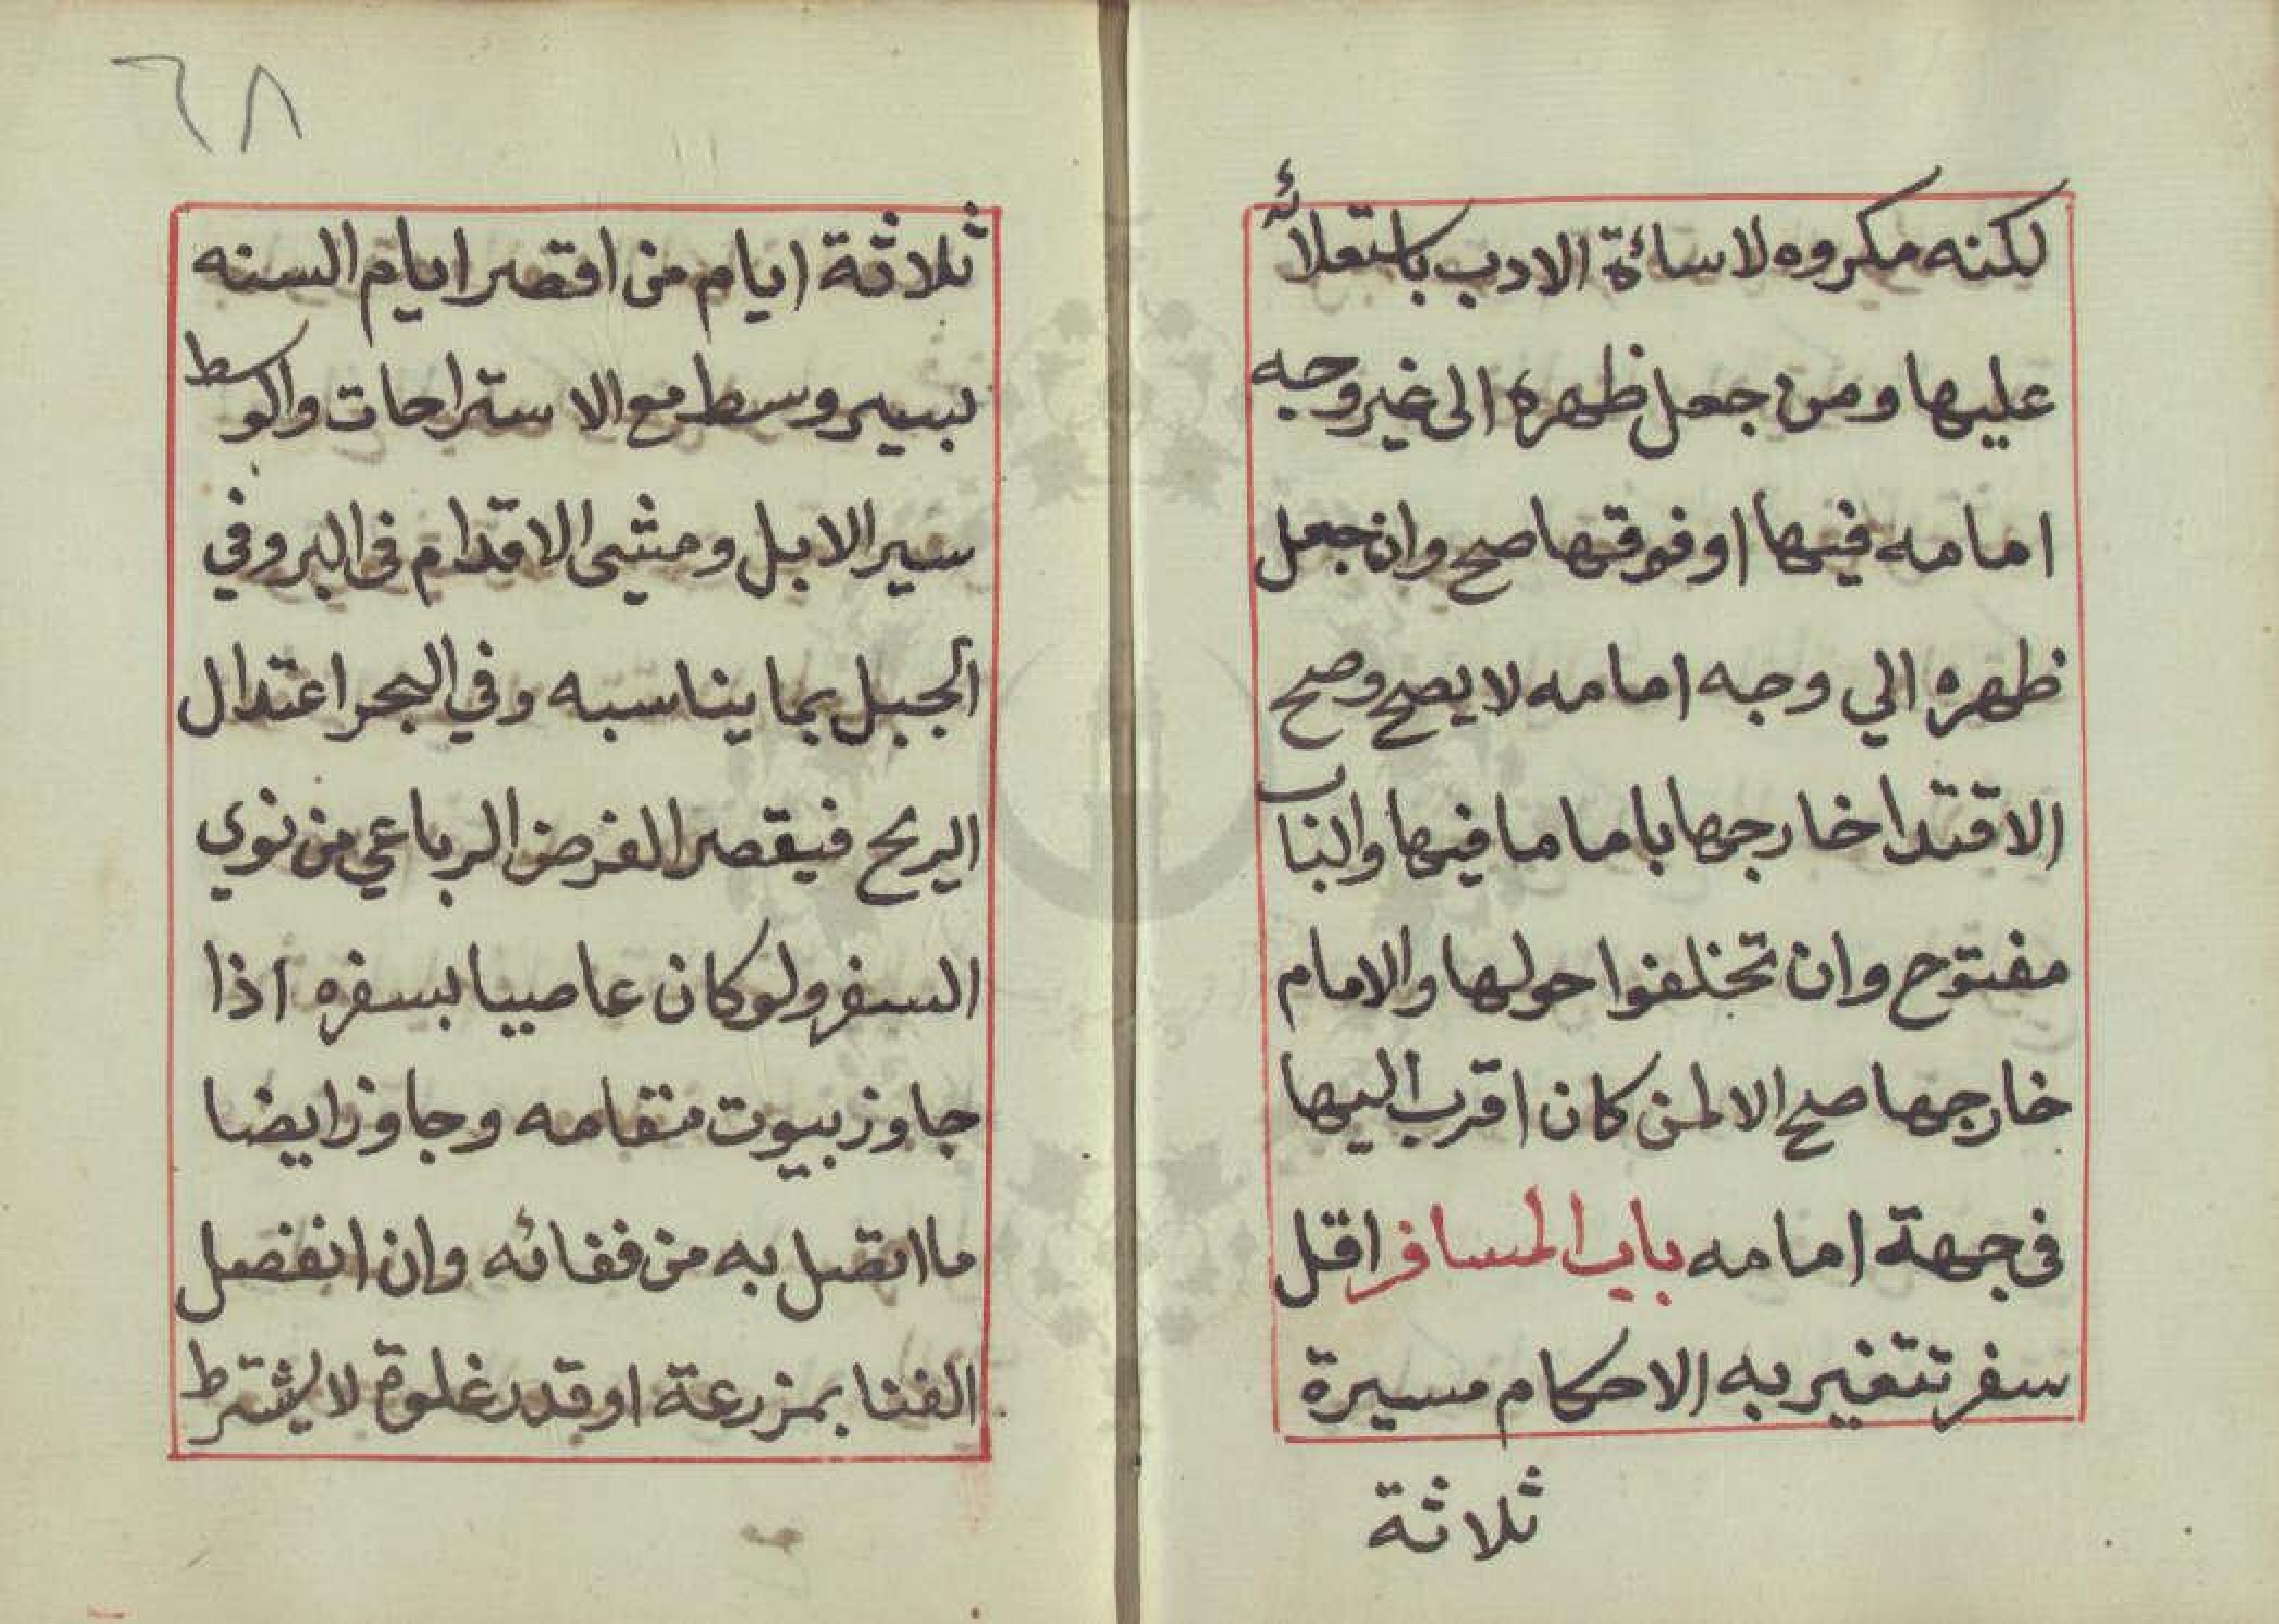 لكنه مكروه لاسائة الادب باستعلائه
عليها ومن جعل ظهره الى غير وجه
امامه فيها او فوقها صح وان جعل
ظهره الي وجه امامه لا يصح وصح
الاقتدا خارجها باماما فيها والباب
مفتوح وان تحلفوا حولها والامام
خارجها صح الا لمن كان اقرب اليها
فى جهة امامه باب المسافر اقل
سفر تتغير به الاحكام مسيرة
ثلاثة
٦٨
ثلاثة ايام من اقصر ايام السنه
بسير وسط مع الاستراحات والوسط
سير الابل ومشى الاقدام فى البر وفي
الجبل بما يناسبه وفي البحر اعتدال
الريح فيقصر الفرض الرباعي من نوي
السفر ولو كان عاصيا بسفره اذا
جاوز بيوت مقامه وجاوز ايضا
ما اتصل به من فنائه وان انفصل
الفنا بمزرعة او قدر غلوة لا يشترط